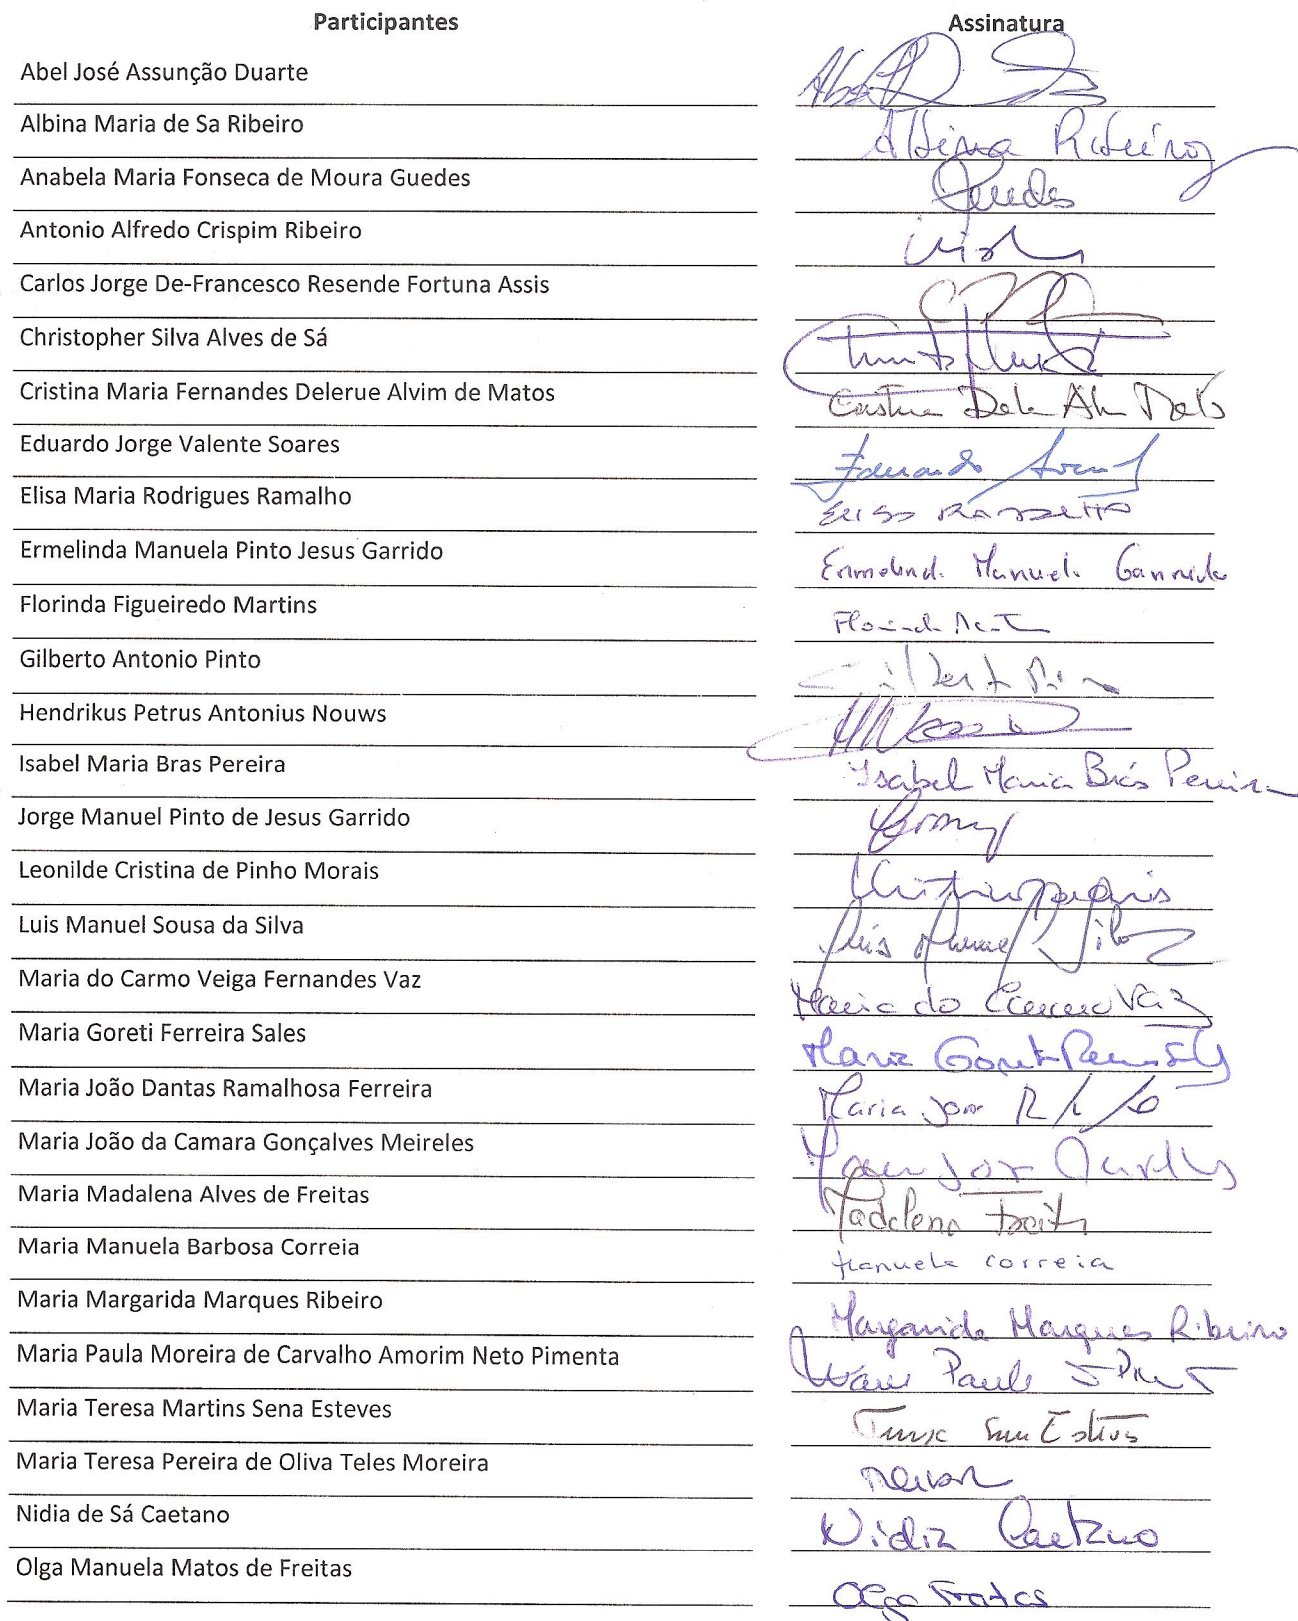 Participantes Assinatura
Abel José Assunção Duarte
Albina Maria de Sa Ribeiro Albina Ribeiro
Anabela Maria Fonseca de Moura Guedes Guedes
Antonio Alfredo Crispim Ribeiro
Carlos Jorge De-Francesco Resende Fortuna Assis
Christopher Silva Alves de Sá
Cristina Maria Fernandes Delerue Alvim de Matos
Eduardo Jorge Valente Soares Eduardo
Elisa Maria Rodrigues Ramalho
Ermelinda Manuela Pinto Jesus Garrido Manuela Garrido
Florinda Figueiredo Martins
Gilberto Antonio Pinto
Hendrikus Petrus Antonius Nouws
Isabel Maria Bras Pereira Isabel Maria Brás Pereira
Jorge Manuel Pinto de Jesus Garrido
Leonilde Cristina de Pinho Morais
Luis Manuel Sousa da Silva Luis Manuel Silva
Maria do Carmo Veiga Fernandes Vaz Maria do Carmo Vaz
Maria Goreti Ferreira Sales Maria Goreti
Maria João Dantas Ramalhosa Ferreira Maria João
Maria João da Camara Gonçalves Meireles
Maria Madalena Alves de Freitas Madalena Freitas
Maria Manuela Barbosa Correia Manuela Correia
Maria Margarida Marques Ribeiro Margarida Marques Ribeiro
Maria Paula Moreira de Carvalho Amorim Neto Pimenta Maria Paula
Maria Teresa Martins Sena Esteves
Maria Teresa Pereira de Oliva Teles Moreira
Nidia de Sá Caetano Nídia Caetano
Olga Manuela Matos de Freitas Olga Freitas